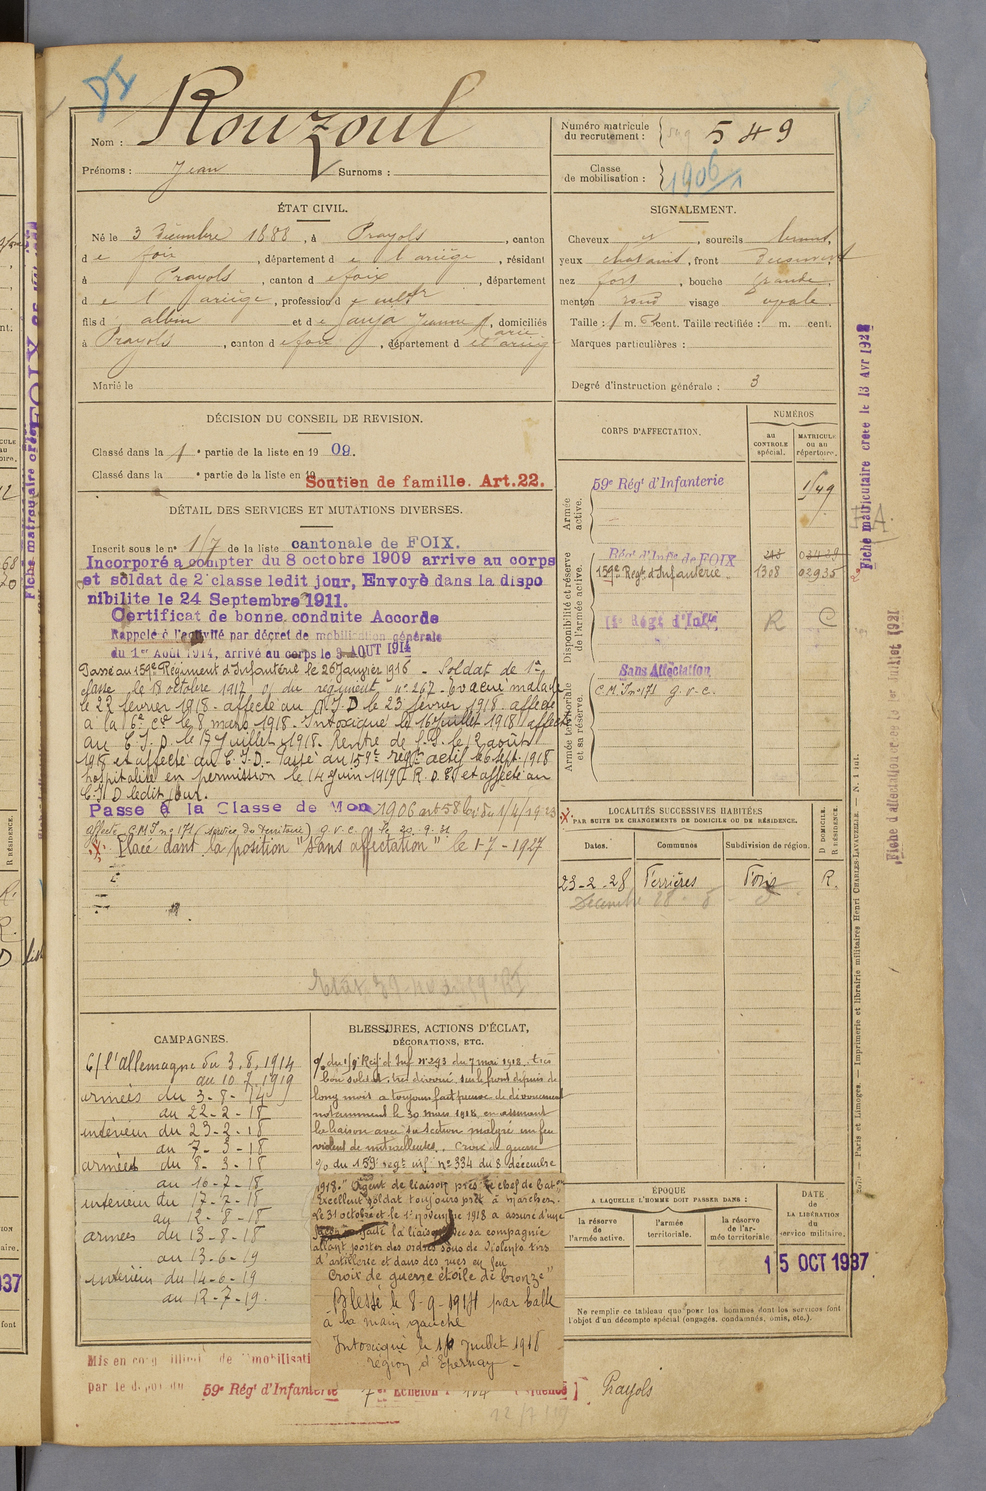 Nom : Rouzoul
Prénoms : Jean Surnoms :
Numéro matricule du recrutement : 549
Classe de mobilisation : 1906
ÉTAT CIVIL.
Né le 3 Décembre 1888, à Prayols, canton
de foix, département de l'ariège, résidant
à Prayols, canton de foix, département
de l'ariège, profession de cultr
fils d albin et de Jeanne Marie, domiciliés
à Prayols, canton de foix, département de l'ariège
Marié le
SIGNALEMENT.
Cheveux et, sourcils bruns,
yeux chatains, front découvert
nez fort, bouche grande
menton rond visage ovale
Taille : 1 m. cent. Taille rectifiée : m. cent.
Marques particulières :
Degré d'instruction générale : 3
DÉCISION DU CONSEIL DE REVISION.
Classé dans la 1e partie de la liste en 1909.
Classé dans la e partie de la liste en 19
Soutien de famille. Art.22.
DÉTAIL DES SERVICES ET MUTATIONS DIVERSES.
Inscrit sous le n° 17 de la liste cantonale de FOIX.
Incorporé a compter du 8 octobre 1909 arrive au corps
et soldat de 2e classe ledit jour, Envoyé dans la dispo
nibilite le 24 Septembre 1911.
Certificat de bonne conduite Accorde
Rappelé à l'activité par décret de mobilisation générale
du 1er Août 1914, arrivé au corps le 3 AOUT 1914
Passé au 159e Régiment d'Infanterie le 26 Janvier 1916 - Soldat de 1re
classe le 18 octobre 1917 o/ du régiment n° 267 - Evacué malade
le 22 février 1918 - affecté au C.I.D le 23 février 1918 affecté
à la 6e Cie le 8 mars 1918 - Intoxiqué le 16 Juillet 1918 affecté
au C.I.D. le 17 Juillet 1918. Rentré de le 12 août
1918 et affecté au C.I.D. - Passé au 159e régt actif le 6 sept. 1918
hospitalisé en permission le 14 Juin 1919 et affecté au
C.I.D ledit jour.
Passé à la Classe de Mon 1906 art 58 du 1/4/1923
affecté C.M.I n° 171 (service du territoire) g.v.c.
Placé dans la position "Sans affectation" le 1-7-1927
CORPS D'AFFECTATION.
NUMÉROS
au CONTROLE spécial.
MATRICULE ou au répertoire.
Armée active.
59e Régt d'Infanterie 1/49
Disponibilité et réserve de l'armée active.
Régt d'Infie de FOIX
159e Régt d'Infanterie. 1308 02935
Régt d'Infie R C
Armée territoriale et sa réserve
Sans Affectation
C.M.I n° 171 g.v.c.
LOCALITÉS SUCCESSIVES HABITÉES
PAR SUITE DE CHANGEMENTS DE DOMICILE OU DE RÉSIDENCE.
Dates. Communes Subdivision de région. D DOMICILE. R RÉSIDENCE.
23-2-28 Ferrières Foix R.
CAMPAGNES.
C/ l'allemagne du 3.8.1914
au 10.7.1919
armées du 3-8-14
au 22-2-18
intérieur du 23-2-18
au 7-3-18
armées du 8-3-18
au 16-7-18
intérieur du 17-7-18
au 12-8-18
armées du 13-8-18
au 13-6-19
intérieur du 14-6-19
au 12-7-19.
BLESSURES, ACTIONS D'ÉCLAT,
DÉCORATIONS, ETC.
o/o du 159e Régt d'Inf n° 293 du 7 mai 1918. très
bon soldat, très dévoué, sur le front depuis de
long mois a toujours fait preuve de dévouement
notamment le 30 mars 1918 en assurant
la liaison avec sa section malgré un feu
violent de mitrailleuses. Croix de guerre
o/o du 159e regt inf n° 334 du 8 décembre
1918. "Agent de liaison près le chef de Bat.on
Excellent soldat toujours prêt à marcher.
Le 31 octobre et le 1er novembre 1918 a assuré d'une
la liaison avec sa compagnie
allant porter des ordres sous de violents tirs
d'artillerie et dans des rues en feu
Croix de guerre étoile de bronze"
Blessé le 8-9-1914 par balle
à la main gauche
Intoxiqué le 16 Juillet 1918
région d'Epernay -
ÉPOQUE
A LAQUELLE L'HOMME DOIT PASSER DANS :
la réserve de l'armée active.
l'armée territoriale.
la réserve de l'armée territoriale.
DATE de LA LIBÉRATION du service militaire.
15 OCT 1937
Ne remplir ce tableau que pour les hommes dont les services font
l'objet d'un décompte spécial (engagés, condamnés, omis, etc.).
par le dépôt du 59e Régt d'Infanterie
Prayols
Fiche matriculaire créée le 13 Avr 1928
Paris et Limoges. — Imprimerie et librairie militaires Henri CHARLES-LAVAUZELLE.